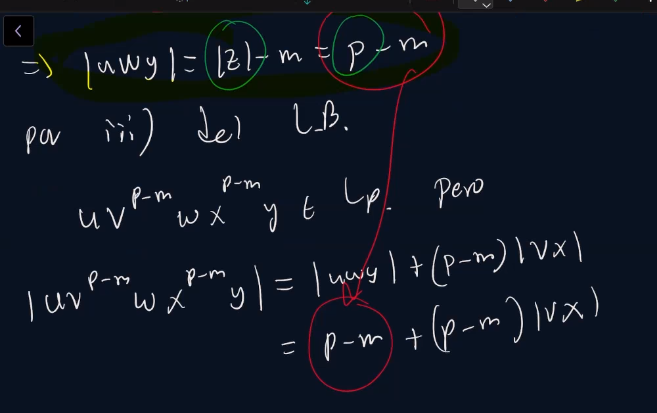 => |uwy| = |z| - m = p - m
por iii) del L.B.
uv^{p-m} w x^{p-m} y ∈ Lp. pero
|uv^{p-m} w x^{p-m} y| = |uwy| + (p-m)|vx|
= p-m + (p-m)|vx|